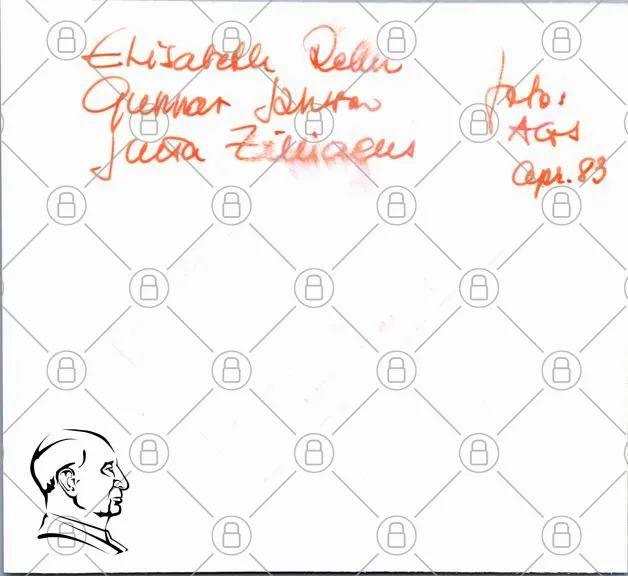 Elisabeth Rehn
Gunnar Jansson
Jutta Zilliacus
foto:
AGS
Apr. 83